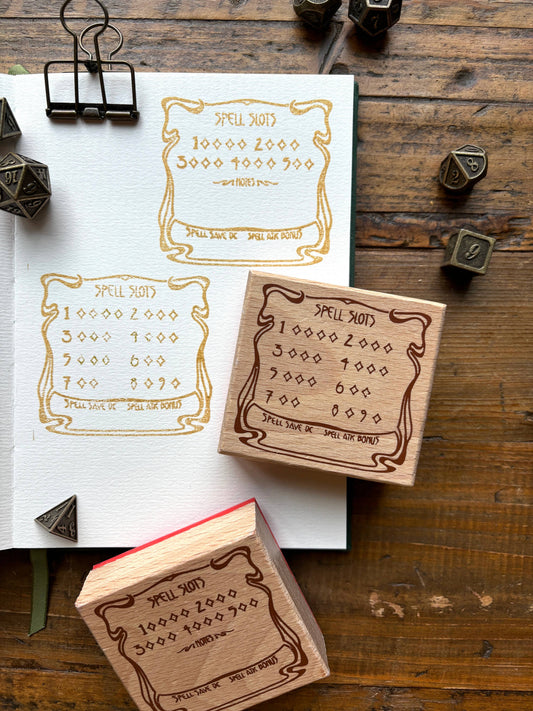 SPELL SLOTS
1◇◇◇◇ 2◇◇◇
3◇◇◇ 4◇◇◇ 5◇◇
NOTES
SPELL SAVE DC SPELL ATK BONUS
SPELL SLOTS
1◇◇◇◇ 2◇◇◇
3◇◇◇ 4◇◇◇
5◇◇◇ 6◇◇
7◇◇ 8◇9◇
SPELL SAVE DC SPELL ATK BONUS
SPELL SLOTS
1◇◇◇◇ 2◇◇◇
3◇◇◇ 4◇◇◇
5◇◇◇ 6◇◇
7◇◇ 8◇9◇
SPELL SAVE DC SPELL ATK BONUS
SPELL SLOTS
1◇◇◇◇ 2◇◇◇
3◇◇◇ 4◇◇◇ 5◇◇
NOTES
SPELL SAVE DC SPELL ATK BONUS